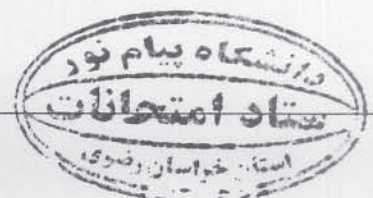 دانشگاه پیام نور
ستاد امتحانات
استان خراسان رضوی